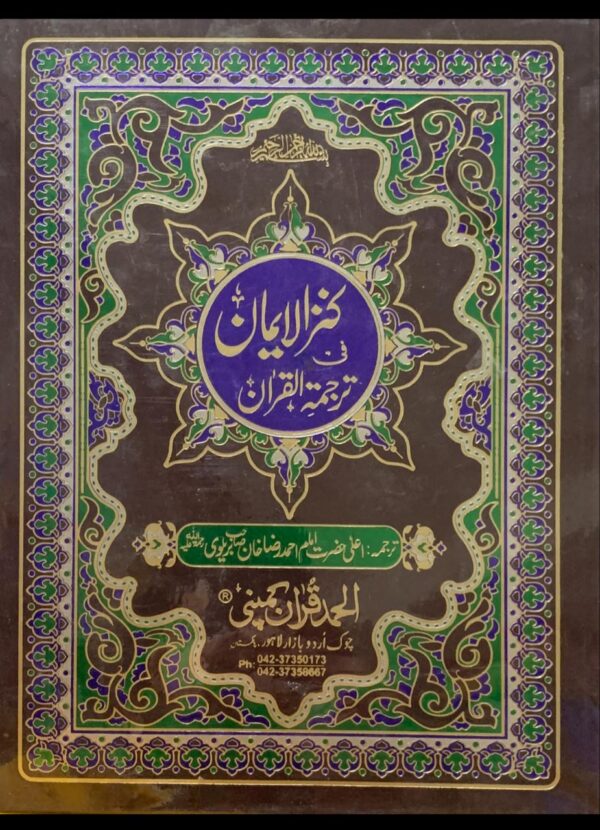 بسم الله الرحمن الرحيم
کنزالایمان
فی
ترجمۃ القرآن
ترجمہ: اعلیٰ حضرت امام احمد رضا خان صاحب بریلوی رحمۃ اللہ علیہ
الحمد قرآن کمپنی ®
چوک اُردو بازار لاہور۔ پاکستان
Ph: 042-37350173
042-37358667